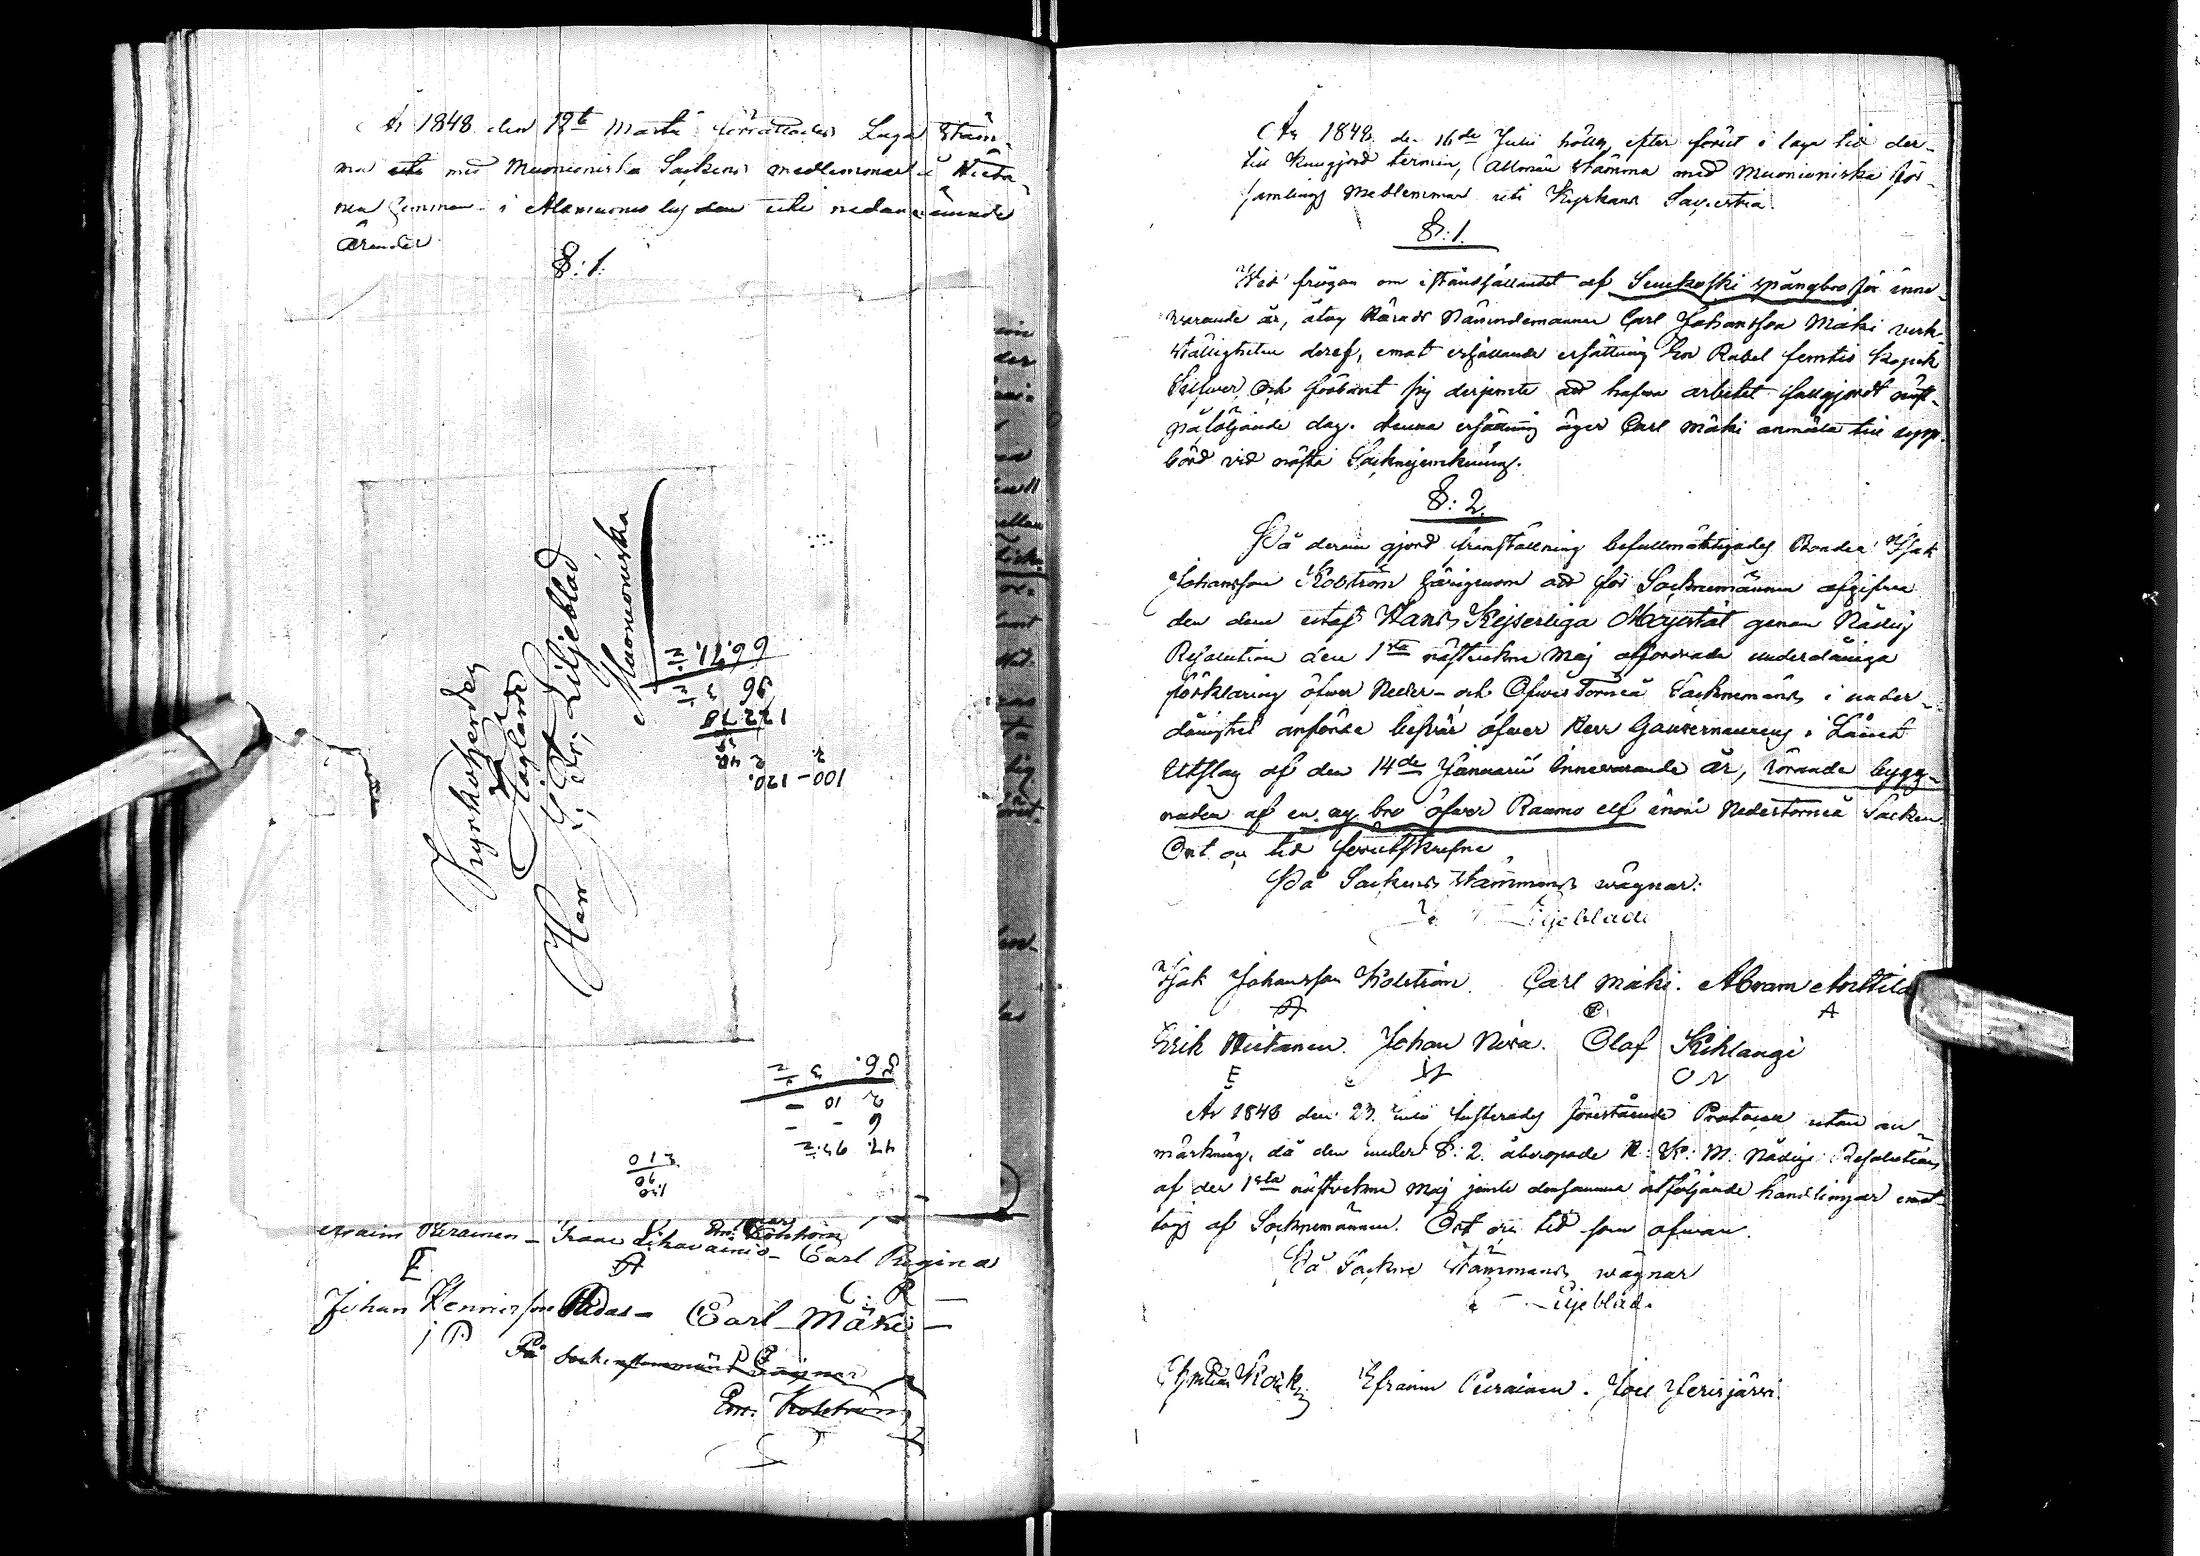 År 1848 den 19de Martii förrättades Laga Stäm-
ma uti med Muonioniska Sockens medlemmar i Hieta-
nen hemman i Alamuonio by den uti nedannämnde
Ärender
§: 1:
Kyrkoherden
Höglärde
Herr J: Fr: Liljeblad
Muonioniska
66.71.½
96 3 ½
122 78
2 48
100 - 120.
56. 3 ½
2 10 -
6 - -
47. 93.½
120
90
210
Em. Kolström
Efraim Kerainen - Isaac Lihavainio - Carl Regina
E
C. R -
Johan Hennersson Pidas - Carl Mäki -
j P
På sockenstämmans vägnar
Em. Kolström
År 1848 den 16de Julii hölls, efter förut i laga tid der-
till kungjord termin, Allmän Stämma med Muonioniska för-
samlings Medlemmar uti Kyrkans Sacristia.
§: 1.
Wid frågan om iståndsättandet af Suukoski spångbro för inne-
warande år, åtog Härads Nämndemannen Carl Johansson Mäki verk-
ställigheten deraf, emot erhållande ersättning En Rubel femtio Kopek
Silfver, och förbant sig derjemte att hafva arbetet fullgjordt näst-
påföljande dag. denna ersättning äger Carl Mäki anmäla till upp-
börd vid nästa Socknejemkning.
§: 2.
På derom gjord framställning befullmäktigades Bonden Isak
Johansson Kolström härigenom att för Socknemännen afgifva
den dem utaf Hans Kejserliga Majestät genom Nådig
Resolution den 1sta nästvekne Maj affordrade underdåniga
förklaring öfver Neder- och Öfver Torneå Socknemäns i under-
dånighet anförde besvär öfver Herr Gouverneurens i Länet
Utslag af den 14de Januarii innevarande år, rörande bygg-
naden af en ny bro öfver Raumo elf inom Nedertorneå Socken.
Ort och tid förutskrefne
På Sockne Stämmans wägnar:
Liljeblad
Isak Johansson Kolström. Carl Mäki. Abram Anttila
A
Erik Hietanen. Johan Niva. Olof Kihlangi
E
O N
År 1848 den 23. Julii justerades förestående Protocoll utan an-
märkning, då den under §: 2. åberopade H: K: M: Nådige Resolution
af den 1sta nästvekne Maj jemte densamma åtföljande handlingar emot-
togs af Sockenemännen. Ort och tid som ofwan.
På Sockne Stämmans wägnar
Liljeblad.
Efraim Puranen. Joel Jerisjärvi.